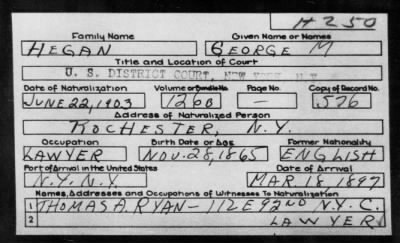 H250
Family Name Given Name or Names
HEGAN GEORGE M
Title and Location of Court
U. S. DISTRICT COURT, NEW YORK, N.Y.
Date of Naturalization Volume or Bundle No. Page No. Copy of Record No.
JUNE 22, 1903 1260 — 576
Address of Naturalized Person
ROCHESTER, N.Y.
Occupation Birth Date or Age Former Nationality
LAWYER NOV. 28, 1865 ENGLISH
Port of Arrival in the United States Date of Arrival
N.Y. N.Y MAR 18 1897
Names, Addresses and Occupations of Witnesses To Naturalization
1 THOMAS A. RYAN - 112 E 92ND N.Y.C.
2 LAWYER